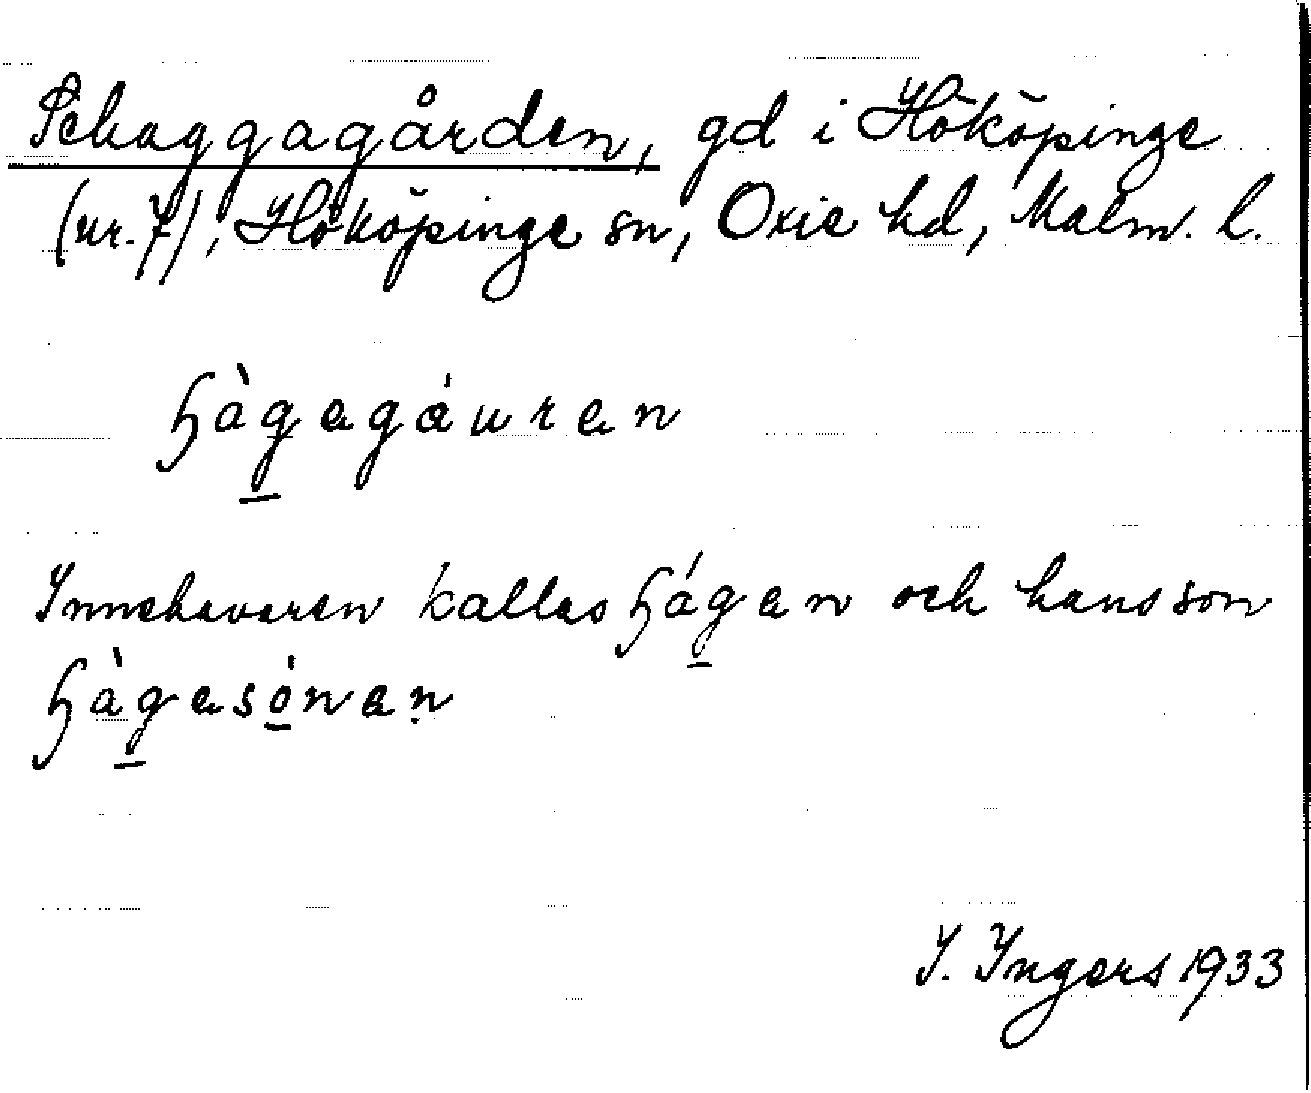 Schaggagården, gd i Hököpinge
(nr. 7), Hököpinge sn, Oxie hd, Malm. l.
ɧàgagáuran
Innehavaren kallas ɧágan och hans son
ɧàgasónan
I. Ingers 1933